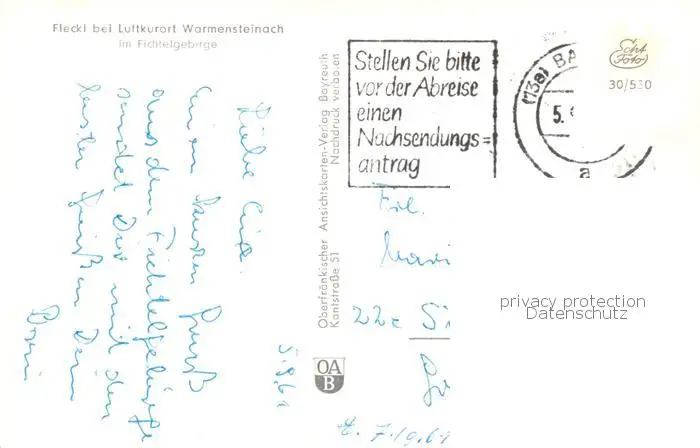 Fleckl bei Luftkurort Warmensteinach
im Fichtelgebirge
Stellen Sie bitte
vor der Abreise
einen
Nachsendungs=
antrag
(13a) BA
5.
a
Echt
Foto
30/530
Oberfränkischer Ansichtskarten-Verlag Bayreuth
Kantstraße 51 Nachdruck verboten
OA
B
Liebe
einen Gruß
aus dem Fichtelgebirge
sendet Dir mit den
besten Grüßen Dein
5.9.61
Frl.
22c
privacy protection
Datenschutz
7./9.61